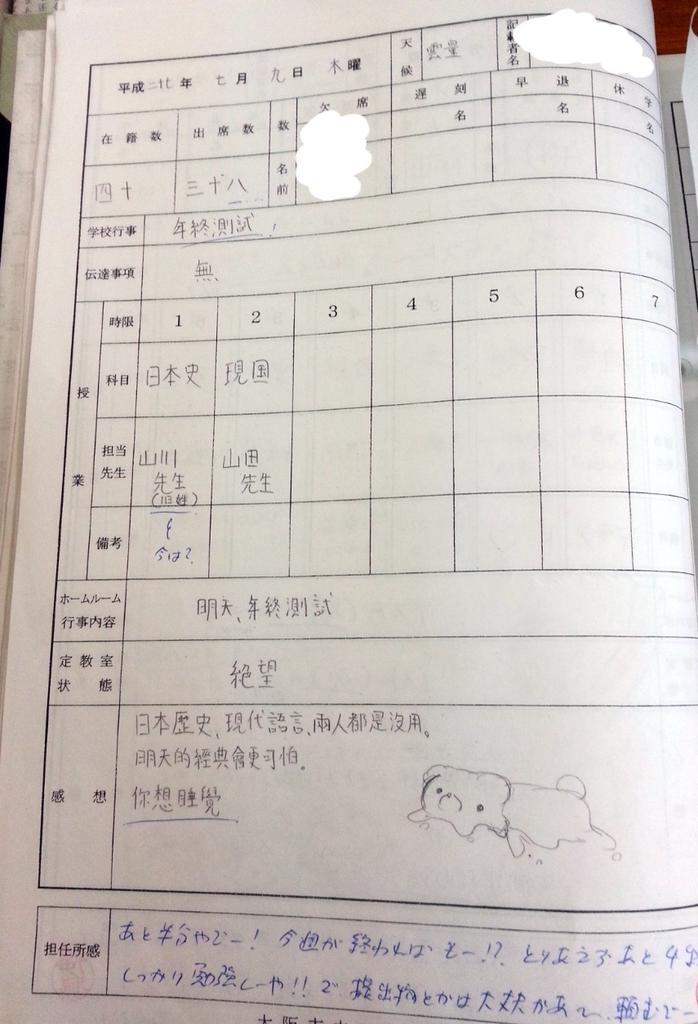 平成 二七 年 七 月 九 日 木 曜
天候 雲量 記載者名
在籍数 出席数 数 欠席 遅刻 早退 休学
名 名 名
四十 三十八 名前
学校行事 年終測試!
伝達事項 無
授業
時限 1 2 3 4 5 6 7
科目 日本史 現国
担当先生 山川先生(旧姓) 山田先生
備考 今は?
ホームルーム行事内容 明天、年終測試
定教室状態 絶望
感想
日本歷史、現代語言、兩人都是沒用。
明天的經典會更可怕。
你想睡覺
担任所感
あと半分やでー! 今週が終われば もー!? とりあえず あと4
しっかり 勉強しーや!! で、提出物とかは大丈夫かあ〜、頼むでー